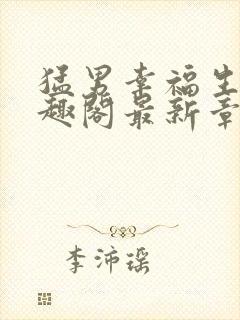 猛男幸福生
趣阁最新章
李沛瑶